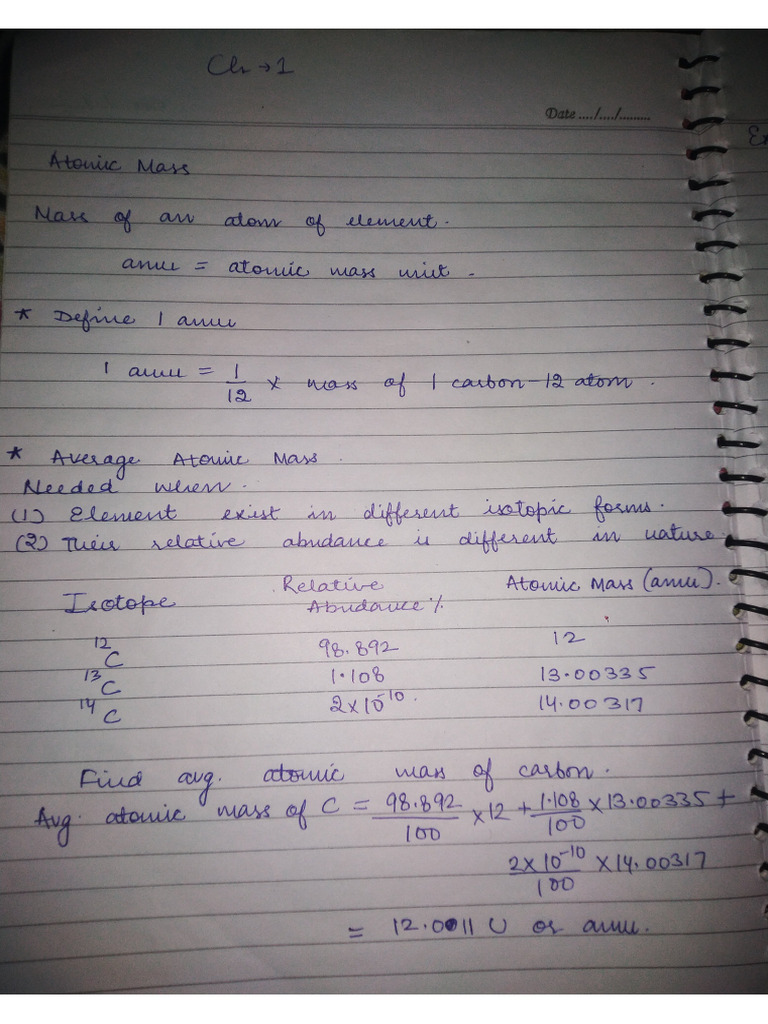 Ch → 1
Date ..../..../.........
Ex
Atomic Mass
Mass of an atom of element.
amu = atomic mass unit.
* Define 1 amu
1 amu = 1/12 × mass of 1 carbon-12 atom.
* Average Atomic Mass.
Needed when.
(1) Element exist in different isotopic forms.
(2) Their relative abudance is different in nature.
Isotope Relative Abudance % Atomic Mass (amu).
¹²C 98.892 12
¹³C 1.108 13.00335
¹⁴C 2×10⁻¹⁰. 14.00317
Find avg. atomic mass of carbon.
Avg. atomic mass of C = 98.892/100 × 12 + 1.108/100 × 13.00335 +
2×10⁻¹⁰/100 × 14.00317
= 12.0011 U or amu.